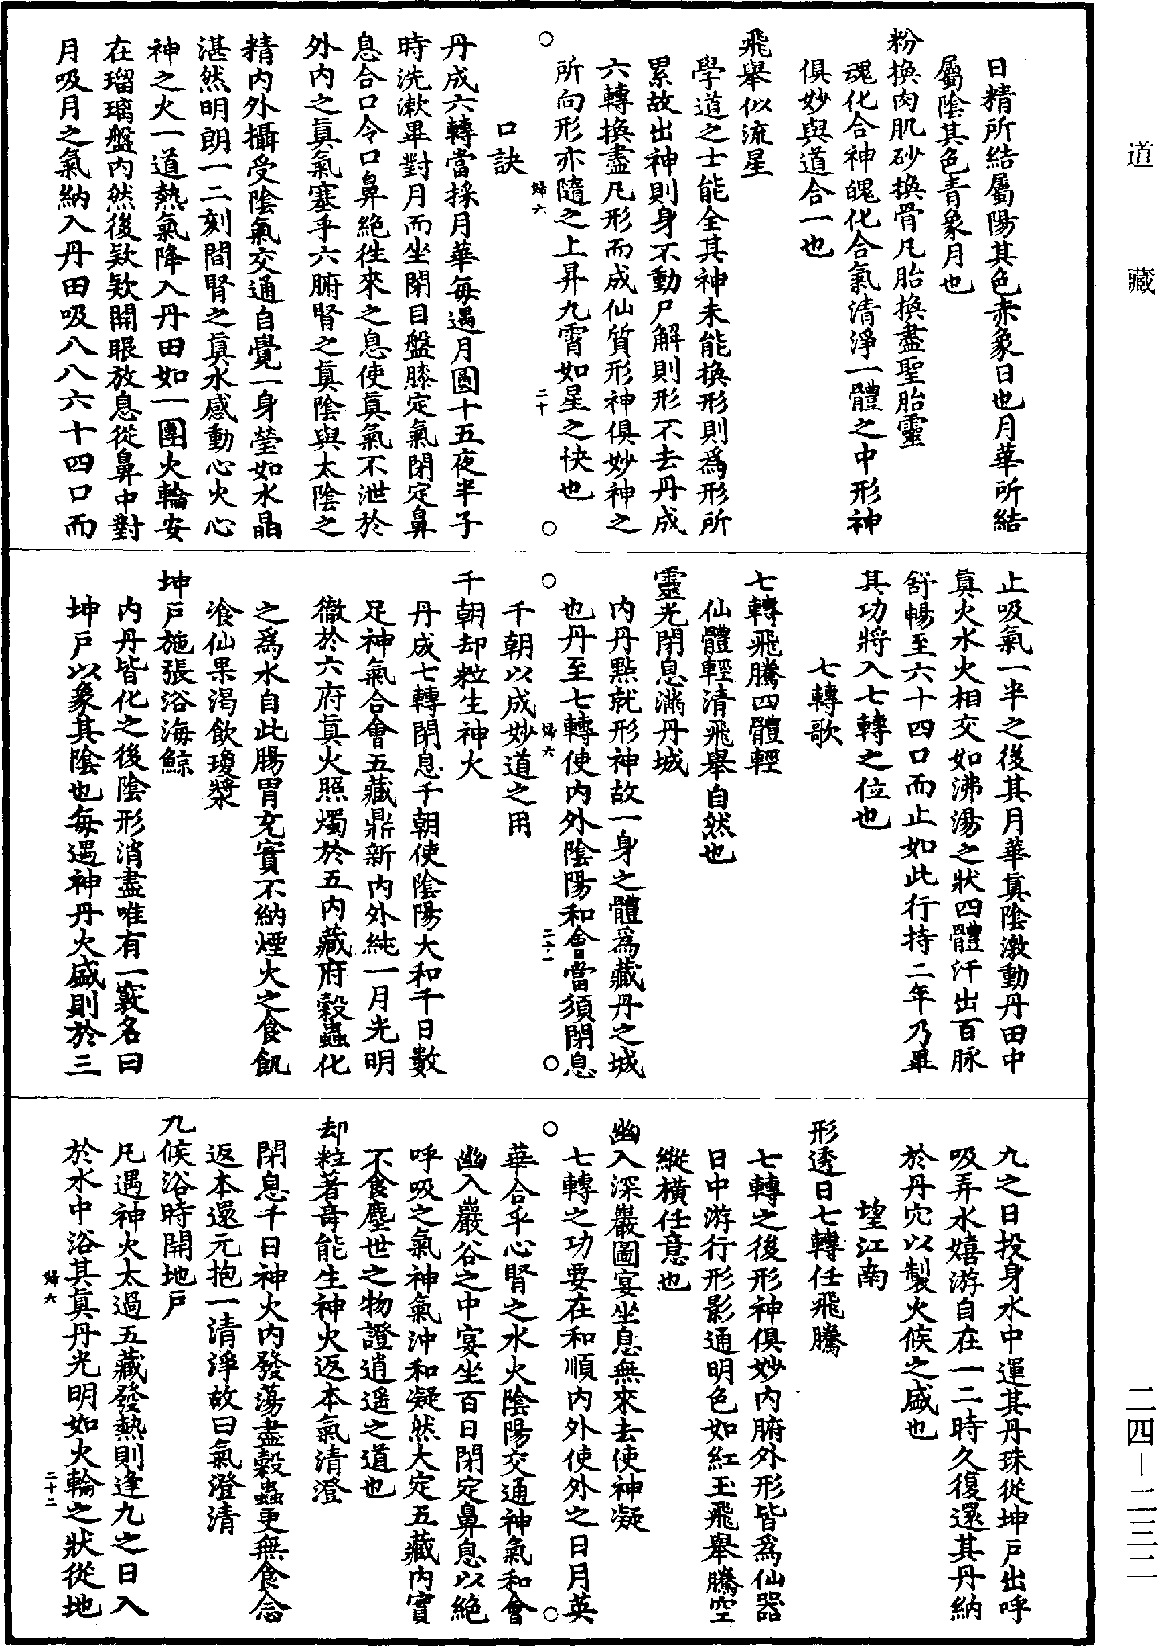 道藏
日精所結屬陽其色赤象日也月華所結
屬陰其色青象月也
粉換肉肌砂換骨凡胎換盡聖胎靈
魂化合神魄化合氣清淨一體之中形神
俱妙與道合一也
飛舉似流星
學道之士能全其神未能換形則為形所
累故出神則身不動尸解則形不去丹成
六轉換盡凡形而成仙質形神俱妙神之
所向形亦隨之上昇九霄如星之快也
歸六
二十
口訣
丹成六轉當採月華每遇月圓十五夜半子
時洗漱畢對月而坐閉目盤膝定氣閉定鼻
息合口令口鼻絕徃來之息使真氣不泄於
外內之真氣塞乎六腑腎之真陰與太陰之
精內外攝受陰氣交通自覺一身瑩如水晶
湛然明朗一二刻間腎之真水感動心火心
神之火一道熱氣降入丹田如一團火輪安
在瑠璃盤內然後欵欵開眼放息從鼻中對
月吸月之氣納入丹田吸八八六十四口而
止吸氣一半之後其月華真陰激動丹田中
真火水火相交如沸湯之狀四體汗出百脉
舒暢至六十四口而止如此行持二年乃畢
其功將入七轉之位也
七轉歌
七轉飛騰四體輕
仙體輕清飛舉自然也
靈光閉息滿丹城
內丹點就形神故一身之體為藏丹之城
也丹至七轉使內外陰陽和會當須閉息
歸六
二十一
千朝以成妙道之用
千朝却粒生神火
丹成七轉閉息千朝使陰陽大和千日數
足神氣合會五藏鼎新內外純一月光明
徹於六府真火照燭於五內藏府穀蟲化
之為水自此腸胃充實不納煙火之食飢
飡仙果渴飲瓊漿
坤戶施張浴海鯨
內丹皆化之後陰形消盡唯有一竅名曰
坤戶以象其陰也每遇神丹火盛則於三
九之日投身水中運其丹珠從坤戶出呼
吸弄水嬉游自在一二時久復還其丹納
於丹穴以製火候之盛也
望江南
形透日七轉任飛騰
七轉之後形神俱妙內腑外形皆為仙器
日中游行形影通明色如紅玉飛舉騰空
縱橫任意也
幽入深巖圖宴坐息無來去使神凝
七轉之功要在和順內外使外之日月英
華合乎心腎之水火陰陽交通神氣和會
幽入巖谷之中宴坐百日閉定鼻息以絕
呼吸之氣神氣沖和凝然大定五藏內實
不食塵世之物證逍遥之道也
却粒著竒能生神火返本氣清澄
閉息千日神火內發蕩盡穀蟲更無食念
返本還元抱一清淨故曰氣澄清
九候浴時開地戶
凡遇神火太過五藏發熱則逢九之日入
於水中浴其真丹光明如火輪之狀從地
歸六
二十二
二四—二三二